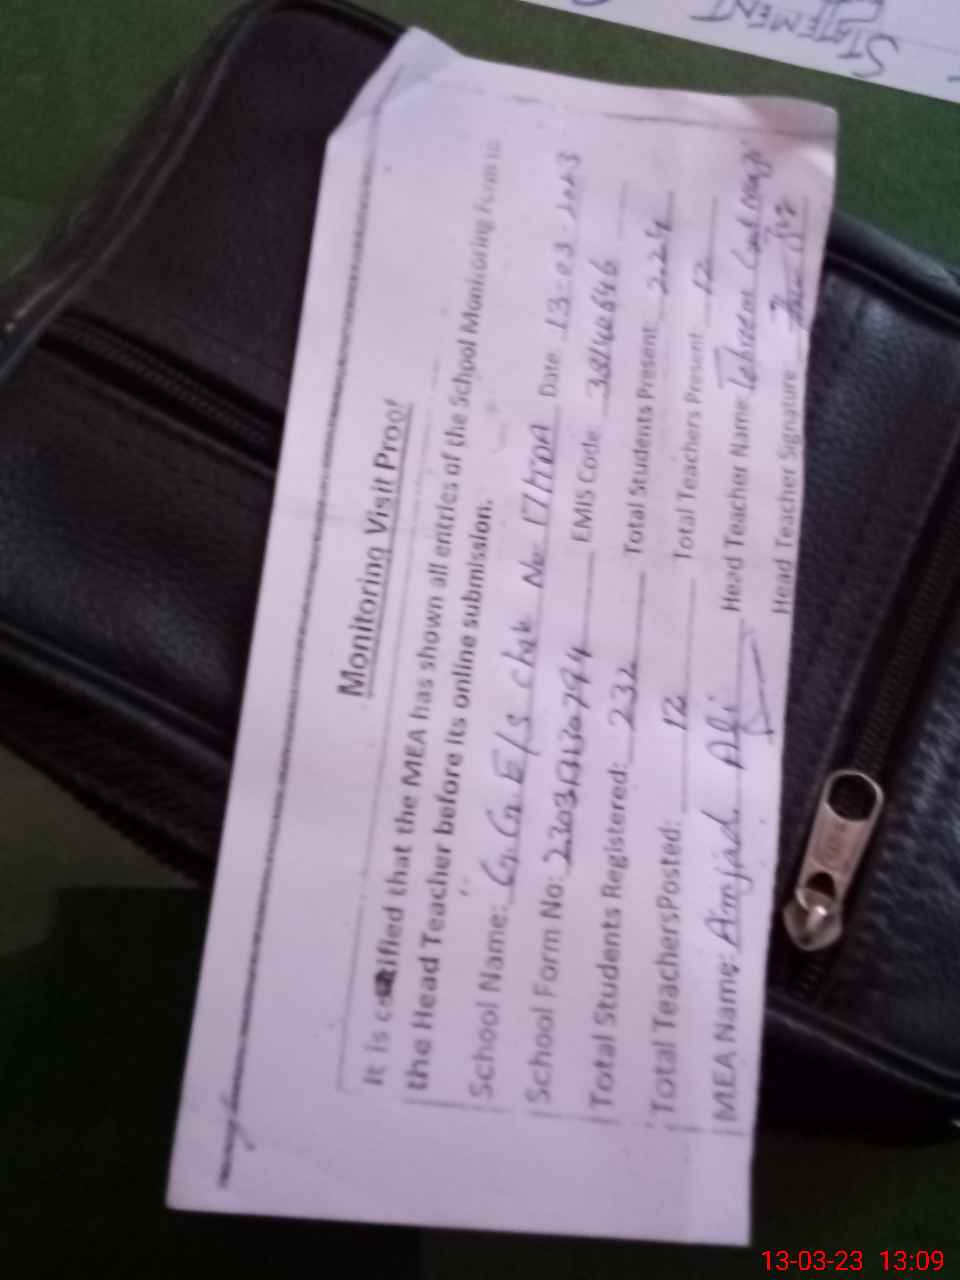 STATEMENT
Monitoring Visit Proof
It is certified that the MEA has shown all entries of the School Monitoring Form to
the Head Teacher before its online submission.
School Name: G.G.E/S Chak No 17/ Date 13-03-2023
School Form No: EMIS Code
Total Students Registered: 232 Total Students Present: 224
Total TeachersPosted: 12 Total Teachers Present 12
MEA Name: Amjad Ali Head Teacher Name
Head Teacher Signature
13-03-23 13:09